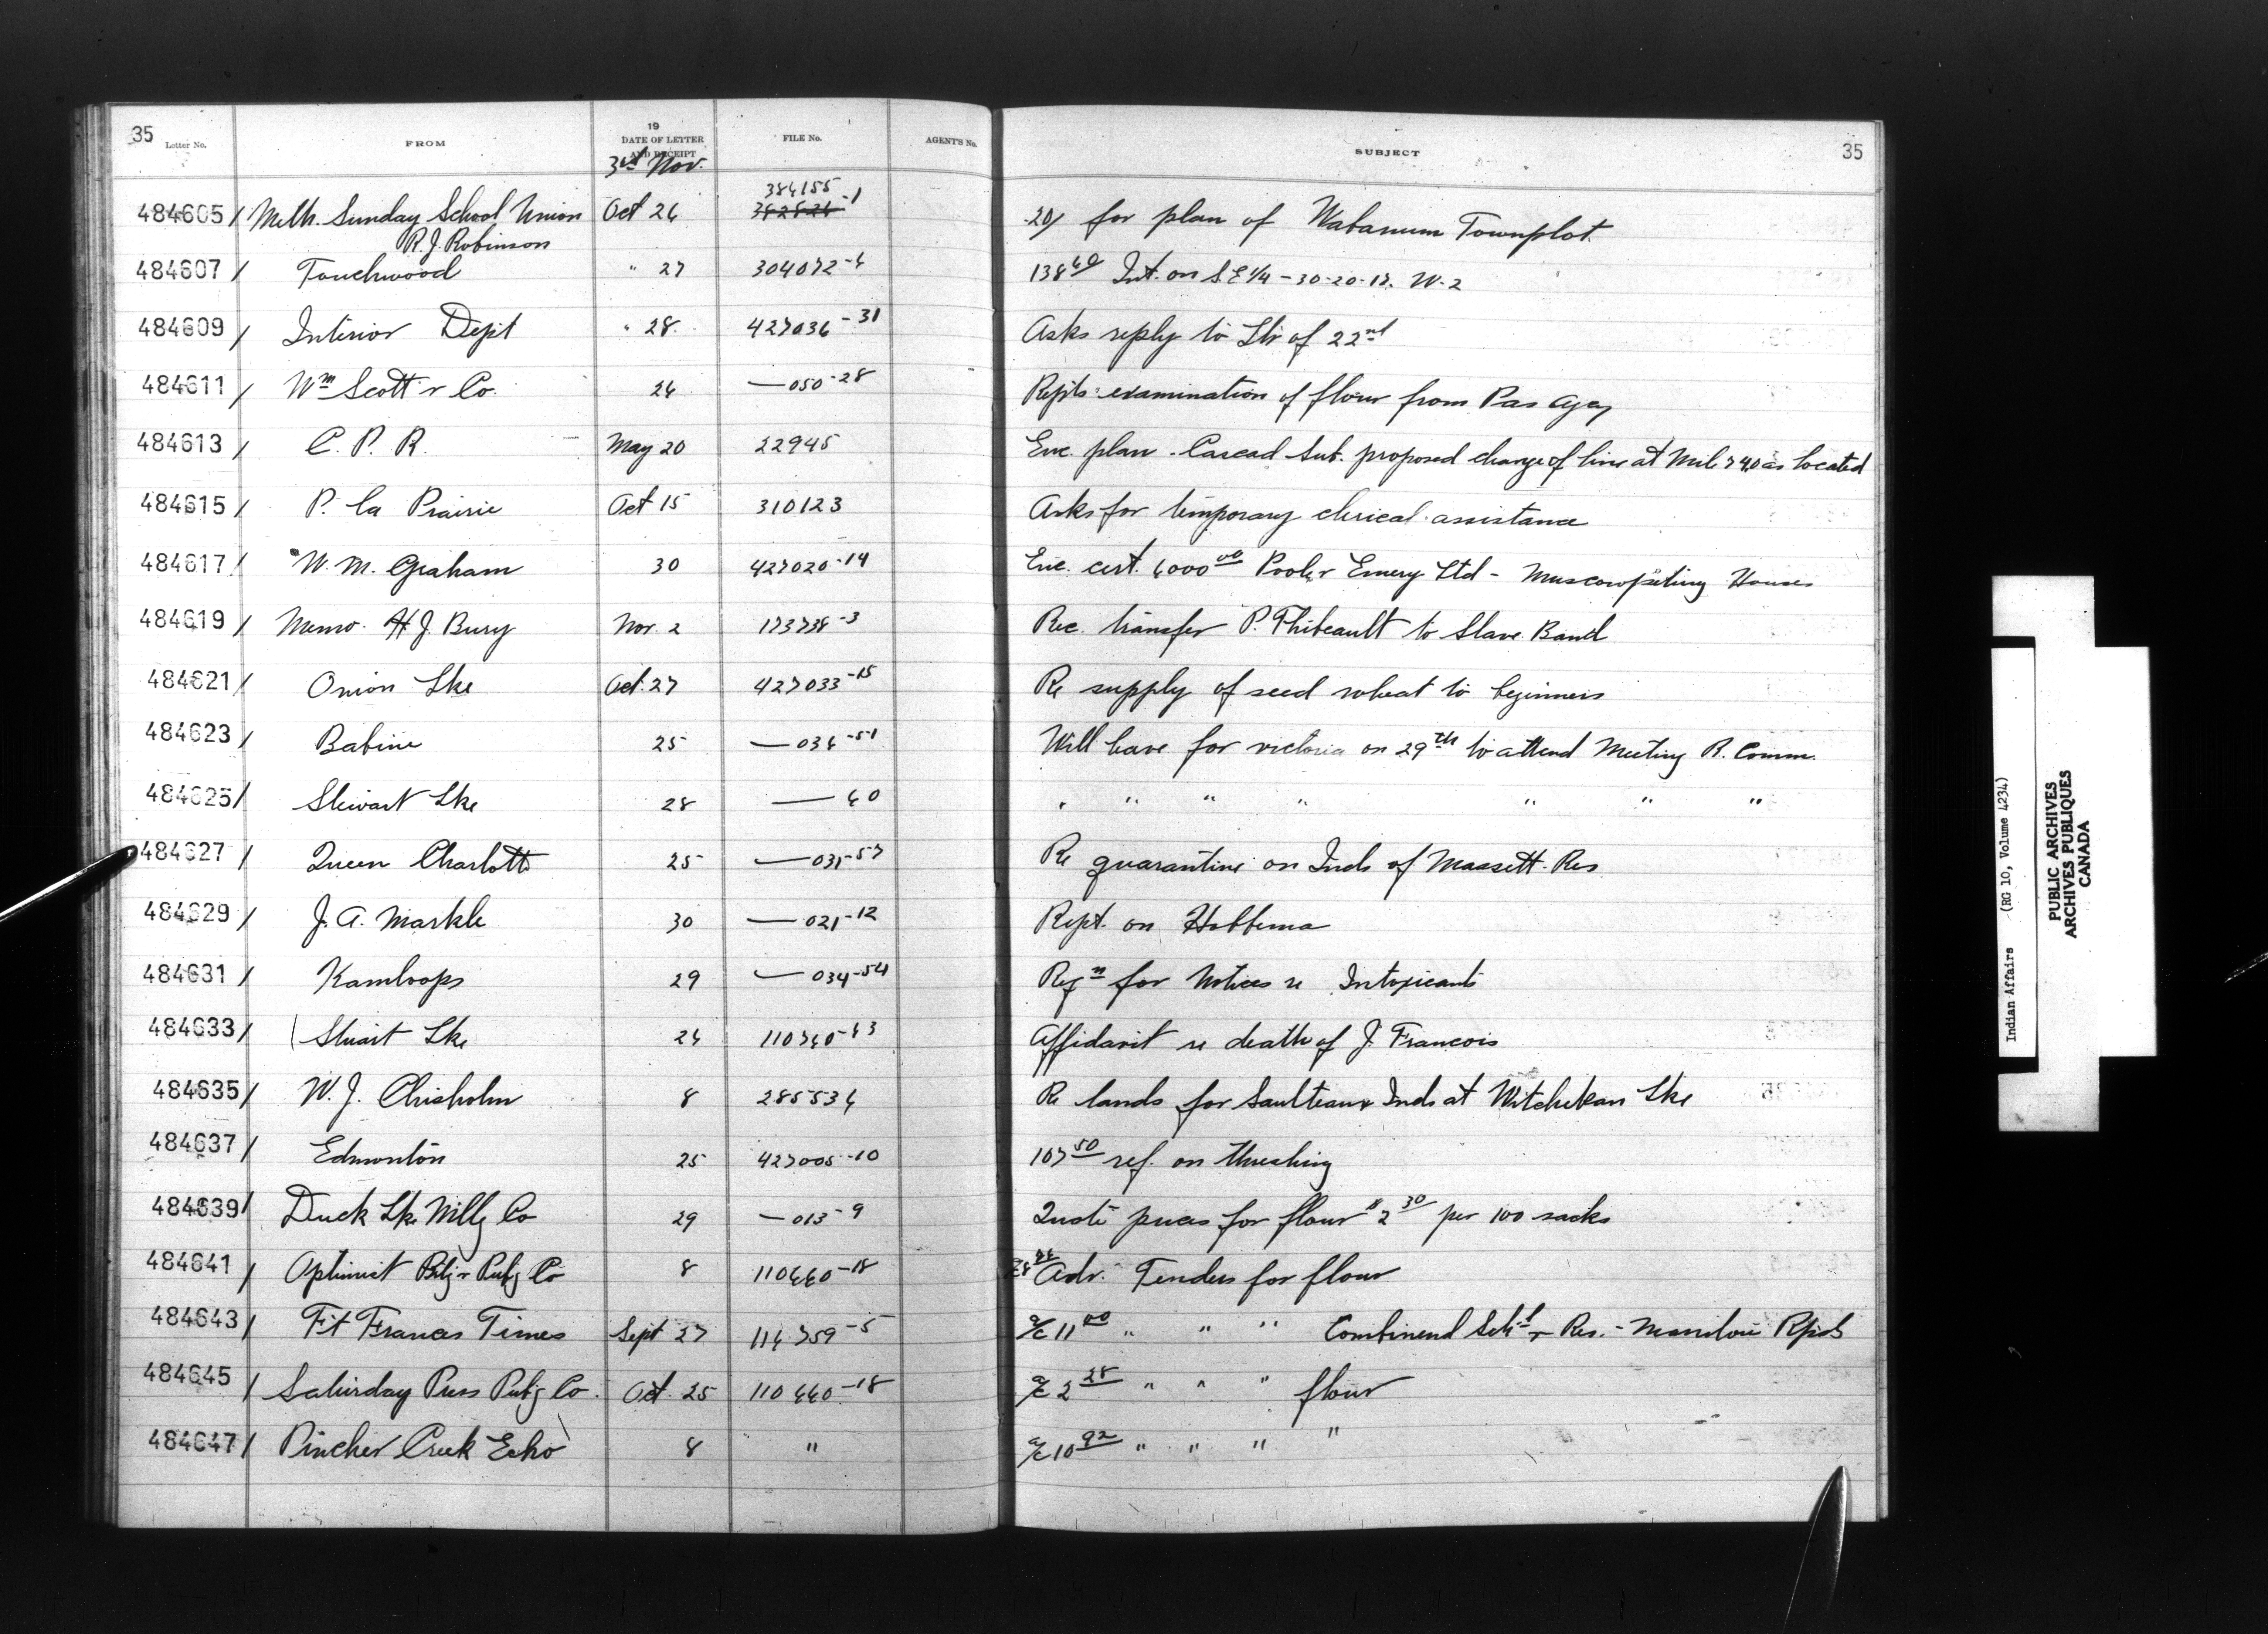 35 Letter No. FROM 19 DATE OF LETTER AND RECEIPT FILE No. AGENT'S No. SUBJECT 35
3rd Nov.
384155
484605 / Meth. Sunday School Union Oct 26 382826-1 .20/ for plan of Wabamum Townplot.
R. J. Robinson
484607 / Touchwood " 27 304072-4 138 60 Int. on S.E 1/4 - 30-20-17. W-2
484609 / Interior Dept " 28. 427036-31 Asks reply to Ltr of 22nd
484611 / Wm Scott & Co. 26 — 050-28 Repts examination of flour from Pas Agcy
484613 / C. P. R. May 20 22945 Enc. plan - Cascad Sub. proposed change of line at Mile 74.0 as located
484615 / P. la Prairie Oct 15 310123 Asks for temporary clerical assistance
484617 / W. M. Graham 30 427020-14 Enc. cert. 6000 00 Poole & Emery Ltd - Muscowpetung Houses
484619 / Memo. H J. Bury Nov. 2 173738-3 Rec. transfer P. Thibeault to Slave Band
484621 / Onion Lke Oct. 27 427033-15 Re supply of seed wheat to beginners
484623 / Babine 25 — 036-51 Will leave for victoria on 29th to attend Meeting R. Comm.
484625 / Stewart Lke 28 — 60 " " " " " " "
484627 / Queen Charlotte 25 — 031-57 Re quarantine on Inds of Massett Res
484629 / J. A. Markle 30 — 021-12 Rept. on Hobbema
484631 / Kamloops 29 — 034-54 Reqn for Notices re Intoxicants
484633 / Stuart Lke 26 110740-63 Affidavit re death of J. Francois
484635 / W. J. Chisholm 8 285534 Re lands for Saulteaux Inds at Witchekan Lke
484637 / Edmonton 25 427005-10 107 50 ref. on threshing
484639 / Duck Lke Millg Co 29 — 013-9 Quote prices for flour $2 30 per 100 sacks
484641 / Optimist Ptg & Pubg Co 8 110660-18 Adv. Tenders for flour
484643 / Ft Frances Times Sept 27 114759-5 a/c 11 00 " " " Combinend Sch'l & Res. - Manitou Rpids
484645 / Saturday Press Pubg Co. Oct. 25 110660-18 a/c 2 28 " " " flour
484647 / Pincher Creek Echo 8 " a/c 10 92 " " " "
Indian Affairs (RG 10, Volume 4234)
PUBLIC ARCHIVES
ARCHIVES PUBLIQUES
CANADA